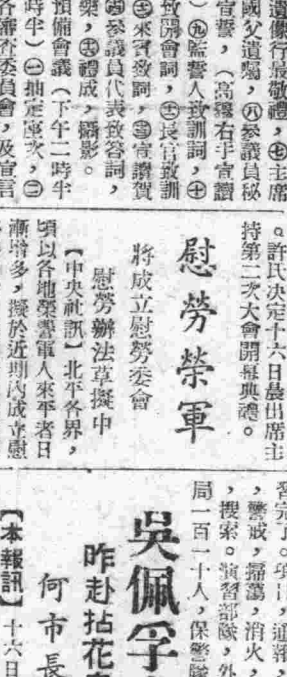 遺像行最敬禮，㊆主席
國父遺囑，㊇參議員秘
宣誓，（高舉右手宣讀
）㊈監誓人致訓詞，㊉
致開會詞，⑪長官致訓
⑫來賓致詞，⑬宣讀賀
⑭參議員代表致答詞，
樂，⑯禮成，攝影。
預備會議（下午二時半
時半）㊀抽定席次，㊁
各審查委員會，及宣言
。許氏決定十六日晨出席主
持第二次大會開幕典禮。
慰勞榮軍
將成立慰勞委會
慰勞辦法草擬中
【中央社訊】北平各界，
頃以各地榮譽軍人來平者日
漸增多，擬於近期內成立慰
，警戒，掃蕩，消火，
，搜索。演習部隊，外
局一百一十人，保警隊
吳佩孚
昨赴拈花
何市長
【本報訊】十六日